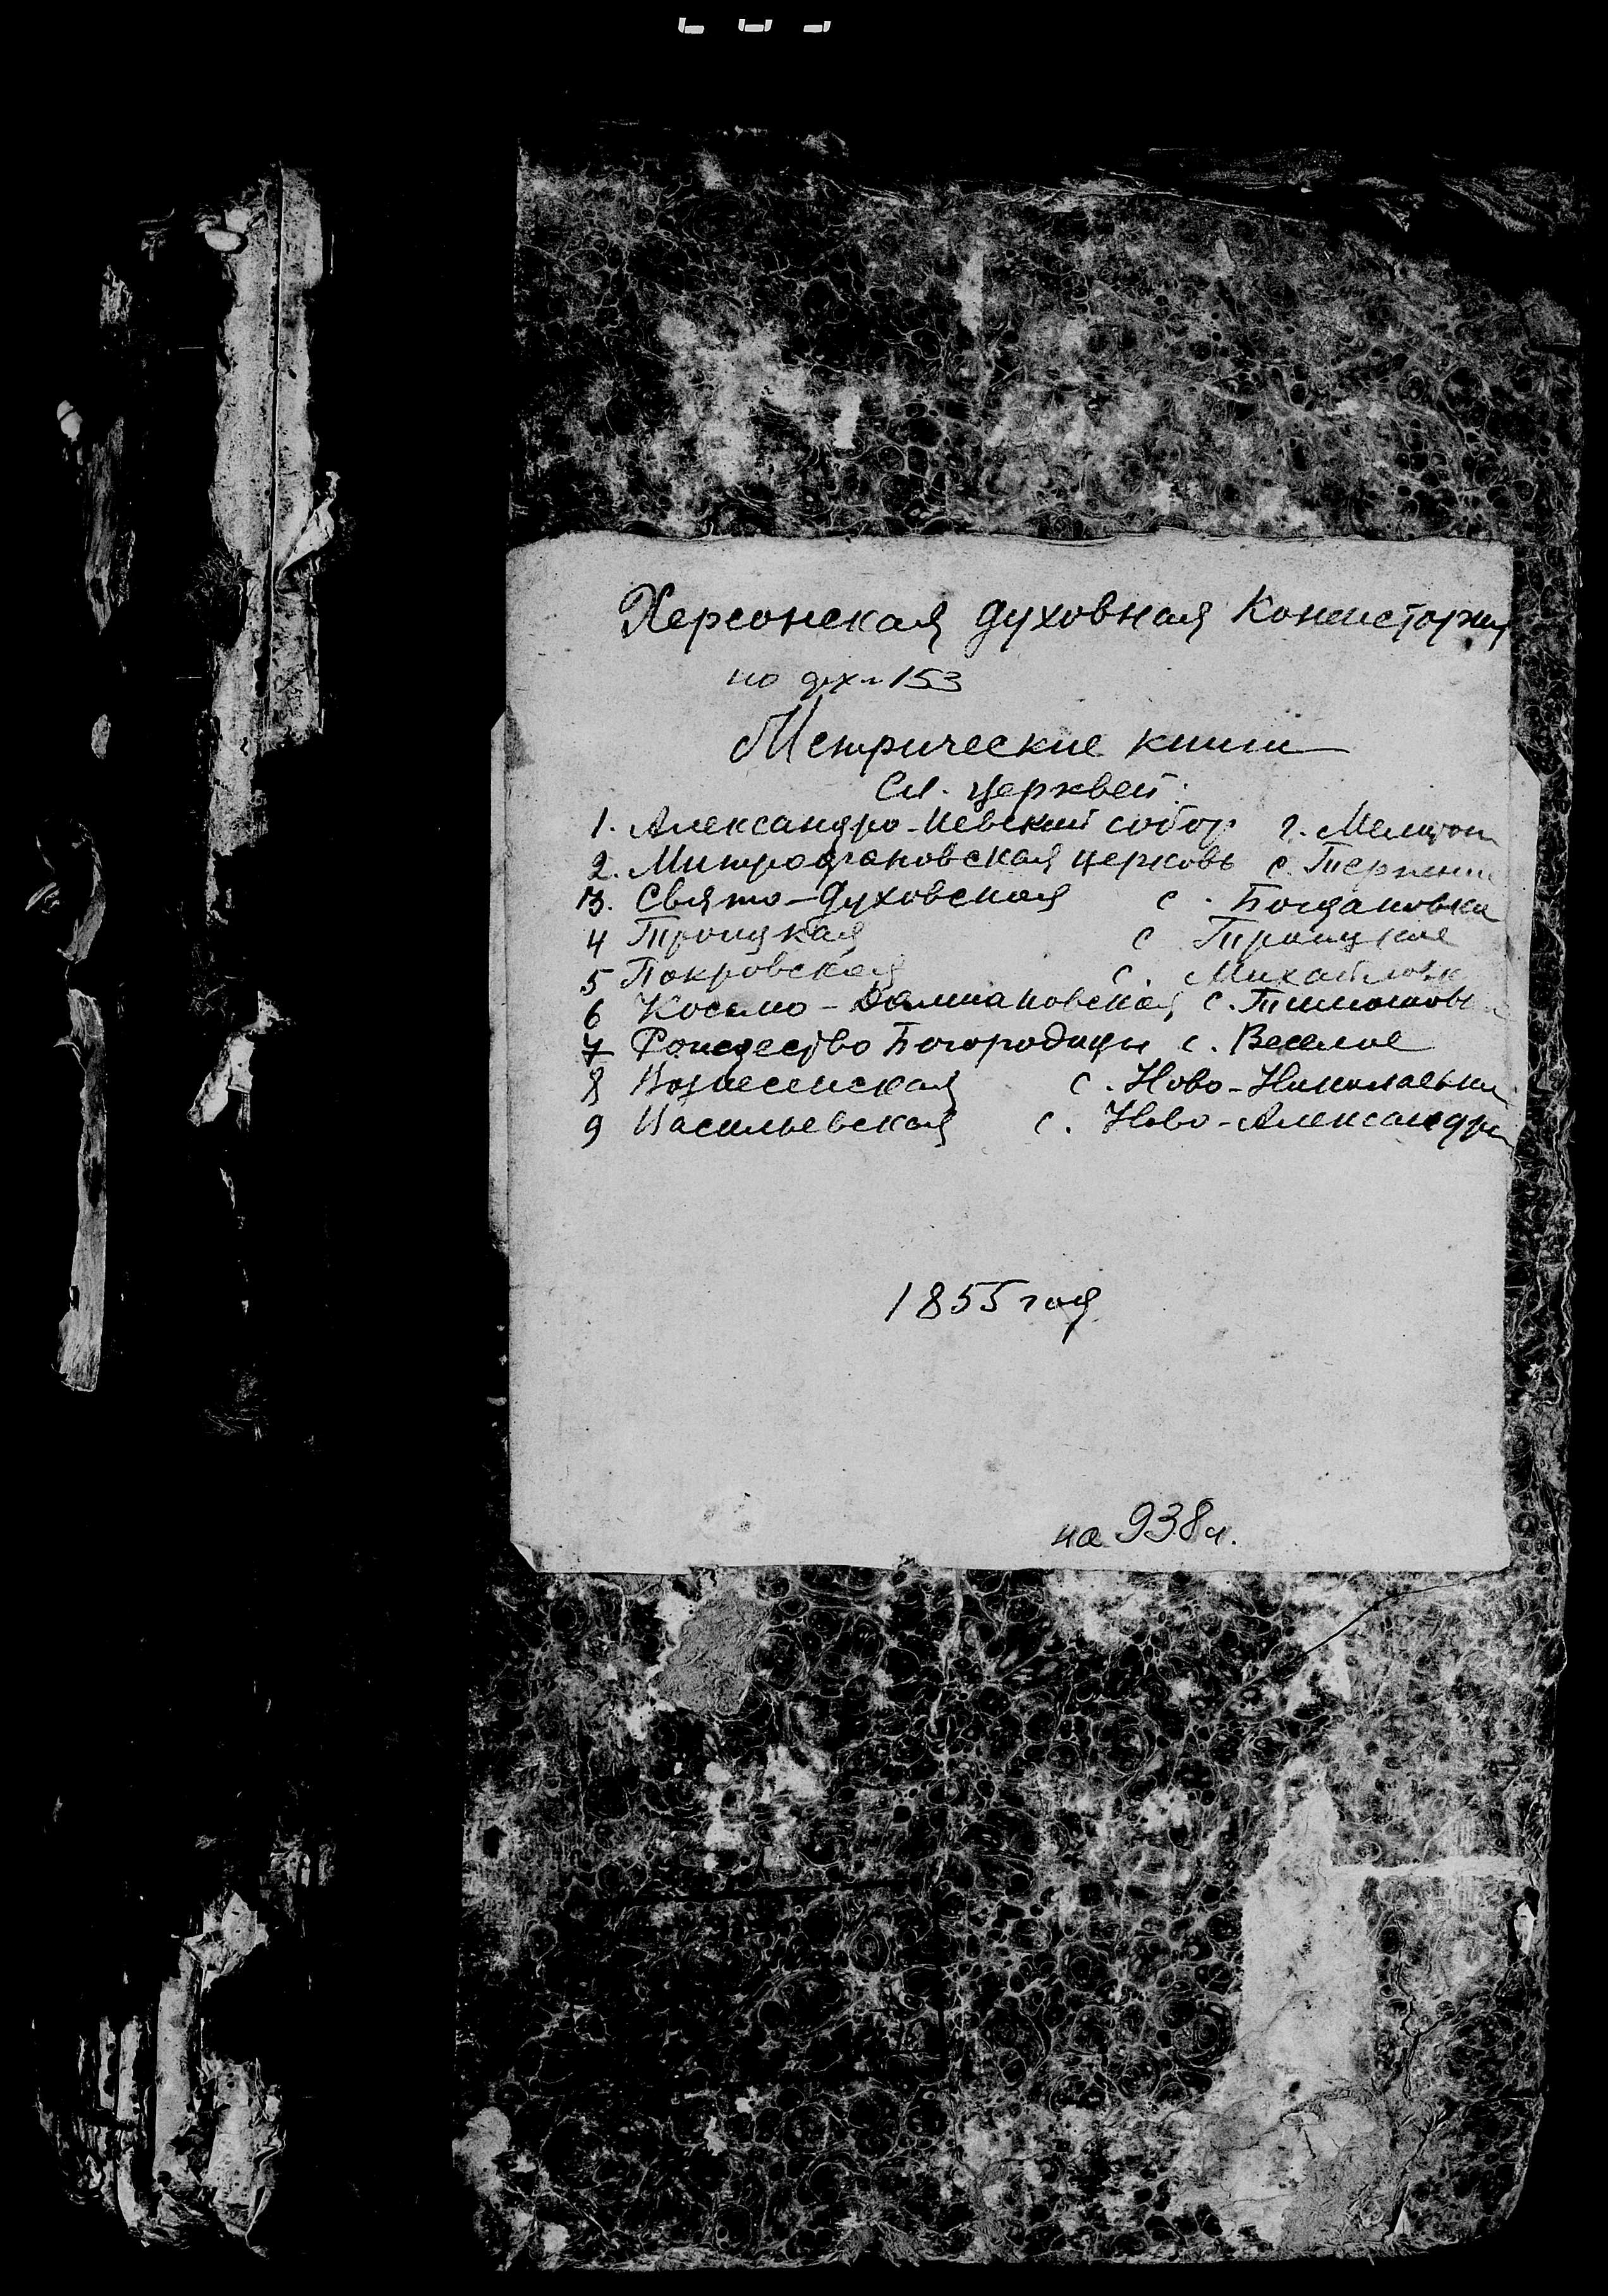 Херсонская духовная консистория
по арх. 153
Метрические книги
Сл. церквей:
1. Александро-Невский собор г. Мелитоп
2. Митрофановская церковь с. Терпени
3. Свято-Духовская с. Богдановка
4 Троицкая с Троицкое
5 Покровская с. Михайловк
6 Космо-Дамиановская с. Тимошовк
7 Рождество Богородицы с. Веселое
8 Вознесенская с. Ново-Николаевка
9 Васильевская с. Ново-Александр
1855 год
на 938 л.